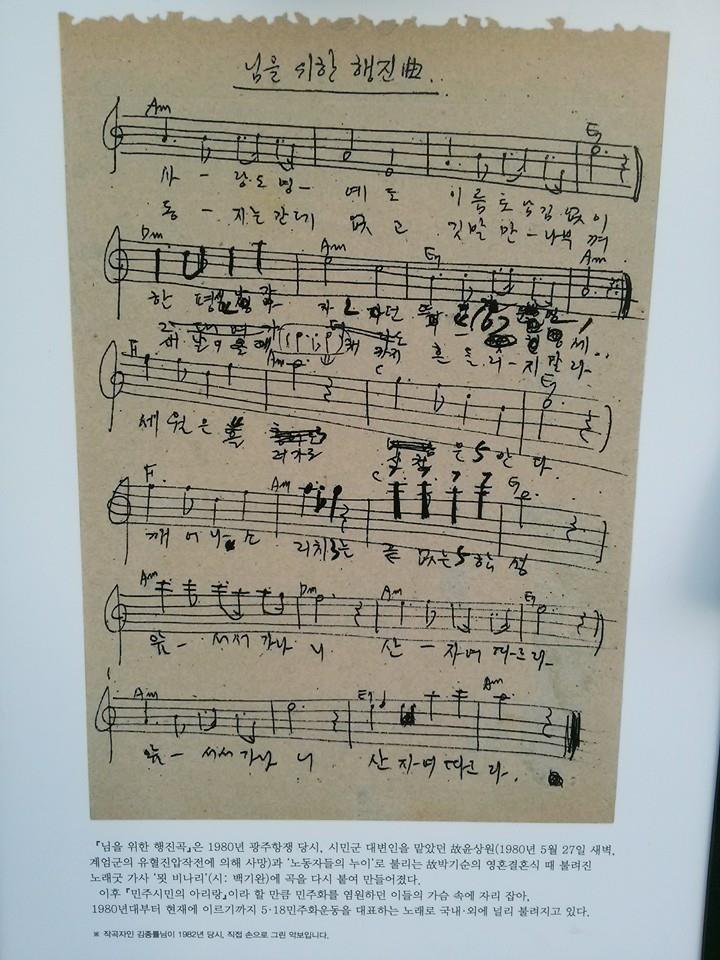 님을 위한 행진曲..
Am E7
사 - 랑도 명 - 예도 이름도 남김없이
동 - 지는 간데 없고 깃발만 - 나부껴
Dm Am E7 Am
한 평생
세월은 흘러가도
은 안다
F Am C E7
깨어나 외치는 끝없는 함성
Am Dm Am E7
앞 - 서서 가나니 산 - 자여 따르라 -
Am E7 Am
앞 - 서서 가나니 산 자여 따르라.
『님을 위한 행진곡』은 1980년 광주항쟁 당시, 시민군 대변인을 맡았던 故윤상원(1980년 5월 27일 새벽,
계엄군의 유혈진압작전에 의해 사망)과 '노동자들의 누이'로 불리는 故박기순의 영혼결혼식 때 불려진
노래굿 가사 '묏 비나리'(시: 백기완)에 곡을 다시 붙여 만들어졌다.
이후 『민주시민의 아리랑』이라 할 만큼 민주화를 염원하던 이들의 가슴 속에 자리 잡아,
1980년대부터 현재에 이르기까지 5·18민주화운동을 대표하는 노래로 국내·외에 널리 불려지고 있다.
※ 작곡자인 김종률님이 1982년 당시, 직접 손으로 그린 악보입니다.